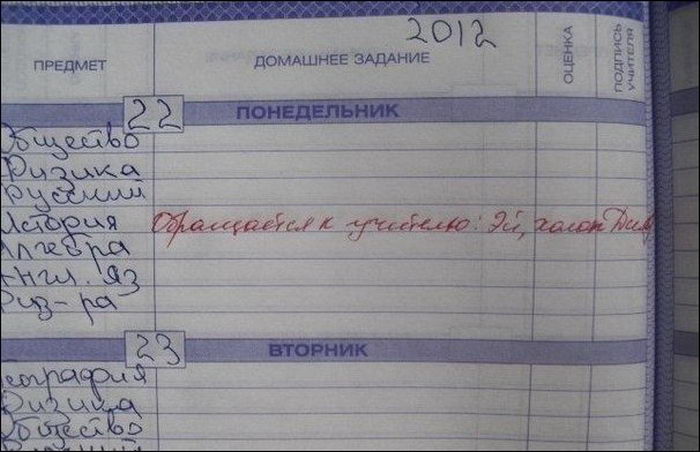 2012
ПРЕДМЕТ ДОМАШНЕЕ ЗАДАНИЕ ОЦЕНКА ПОДПИСЬ УЧИТЕЛЯ
22 ПОНЕДЕЛЬНИК
Общество
Физика
Русский
История Обращается к учителю: Эй, холоп Дима
Алгебра
Англ. яз
Физ-ра
23 ВТОРНИК
География
Физика
Общество